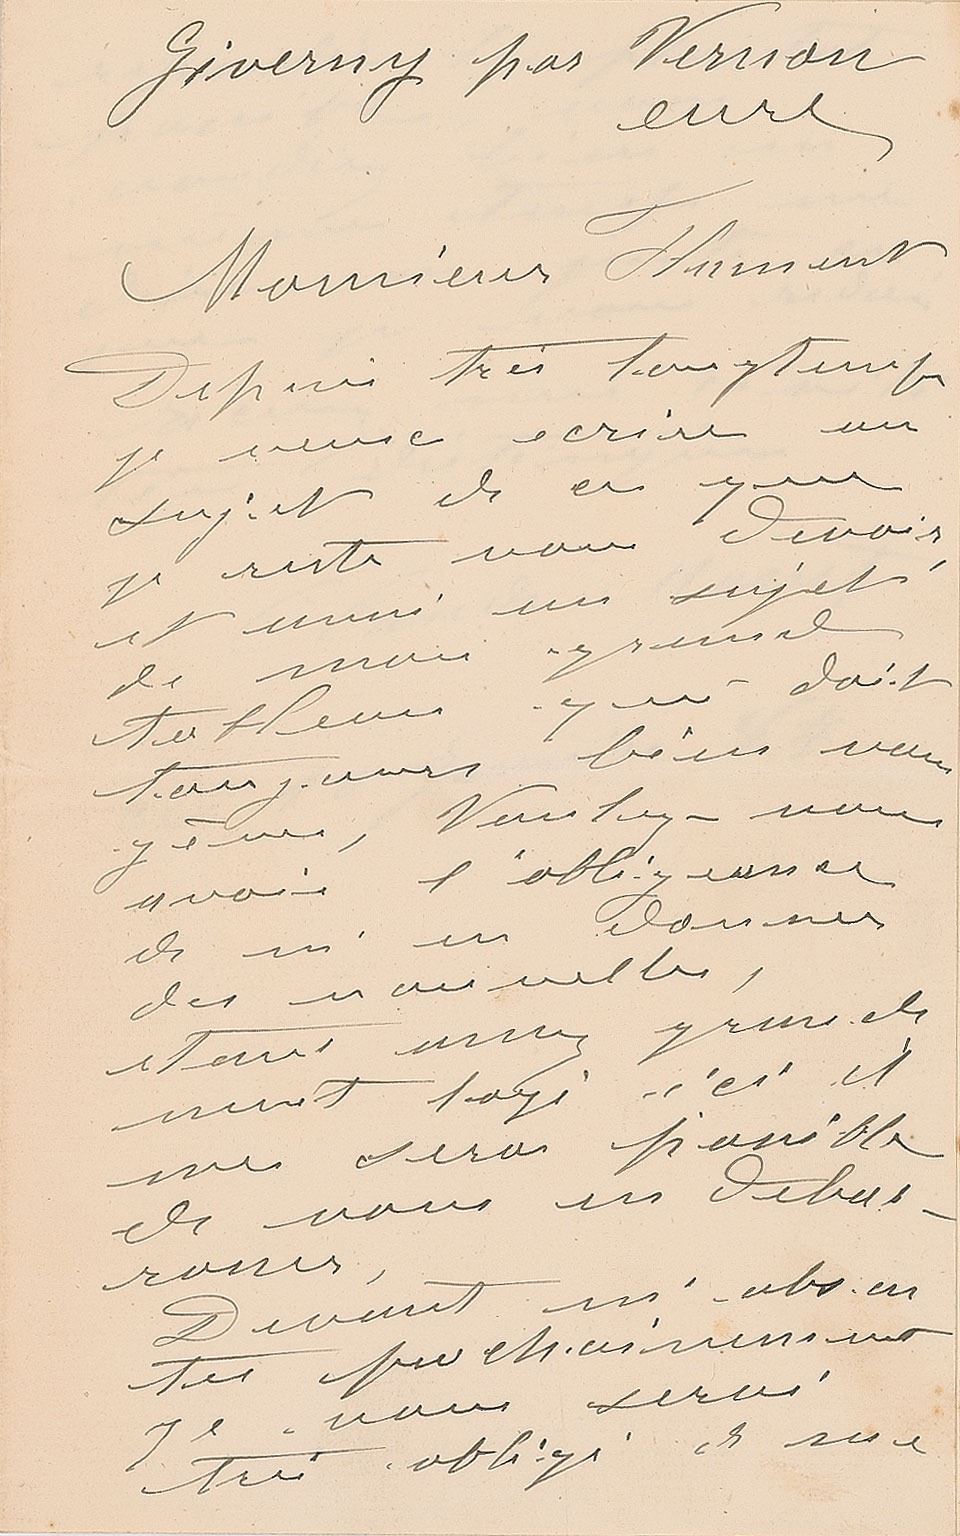 Giverny par Vernon
eure
Monsieur Flament
Depuis très longtemps
je veux ecrire au
sujet de ce que
je reste vous devoir,
et aussi au sujet
de mon grand
tableau qui doit
toujours bien vous
gêner, Veuillez-vous
avoir l'obligeance
de m'en donner
des nouvelles,
étant assez grande
ment logé ici il
me sera possible
de vous en debar-
rasser,
Devant m'absen
ter prochainement
je vous serai
très obligé de me